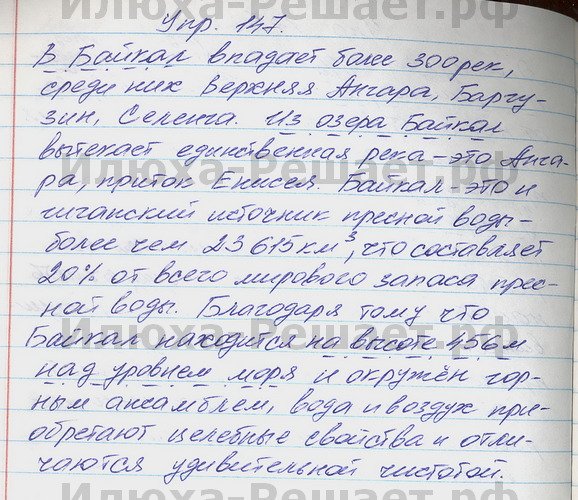 Упр. 147.
В Байкал впадает более 300 рек,
среди них Верхняя Ангара, Баргу-
зин, Селенга. Из озера Байкал
вытекает единственная река - это Анга-
ра, приток Енисея. Байкал - это и
гиганский источник пресной воды -
более чем 23 615 км³, что составляет
20% от всего мирового запаса прес-
ной воды. Благодаря тому что
Байкал находится на высоте 456 м
над уровнем моря и окружён гор-
ным ансамблем, вода и воздух при-
обретают целебные свойства и отли-
чаются удивительной чистотой.
Илюха-Решает.рф
Илюха-Решает.рф
Илюха-Решает.рф
Илюха-Решает.рф